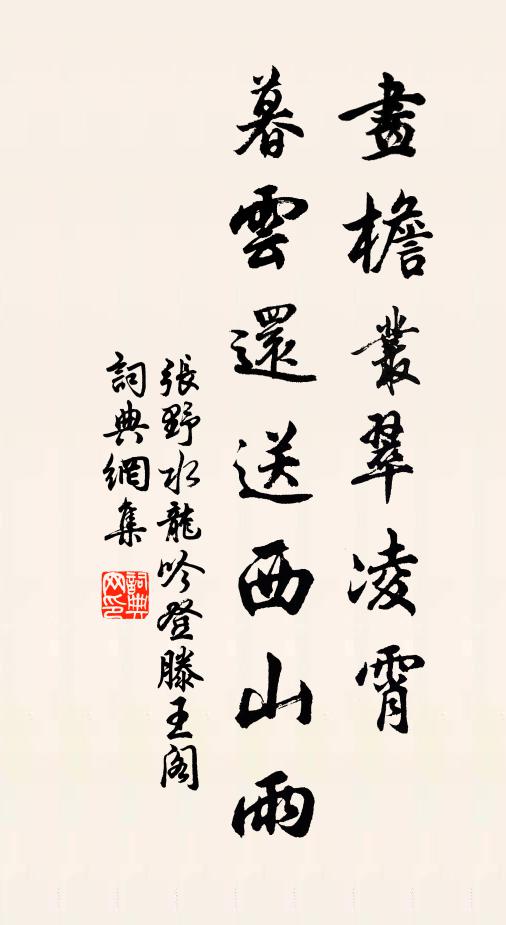 畫檐叢翠凌霄
暮雲還送西山雨
張野水龍吟登滕王阁
詞典網集
詞典网印